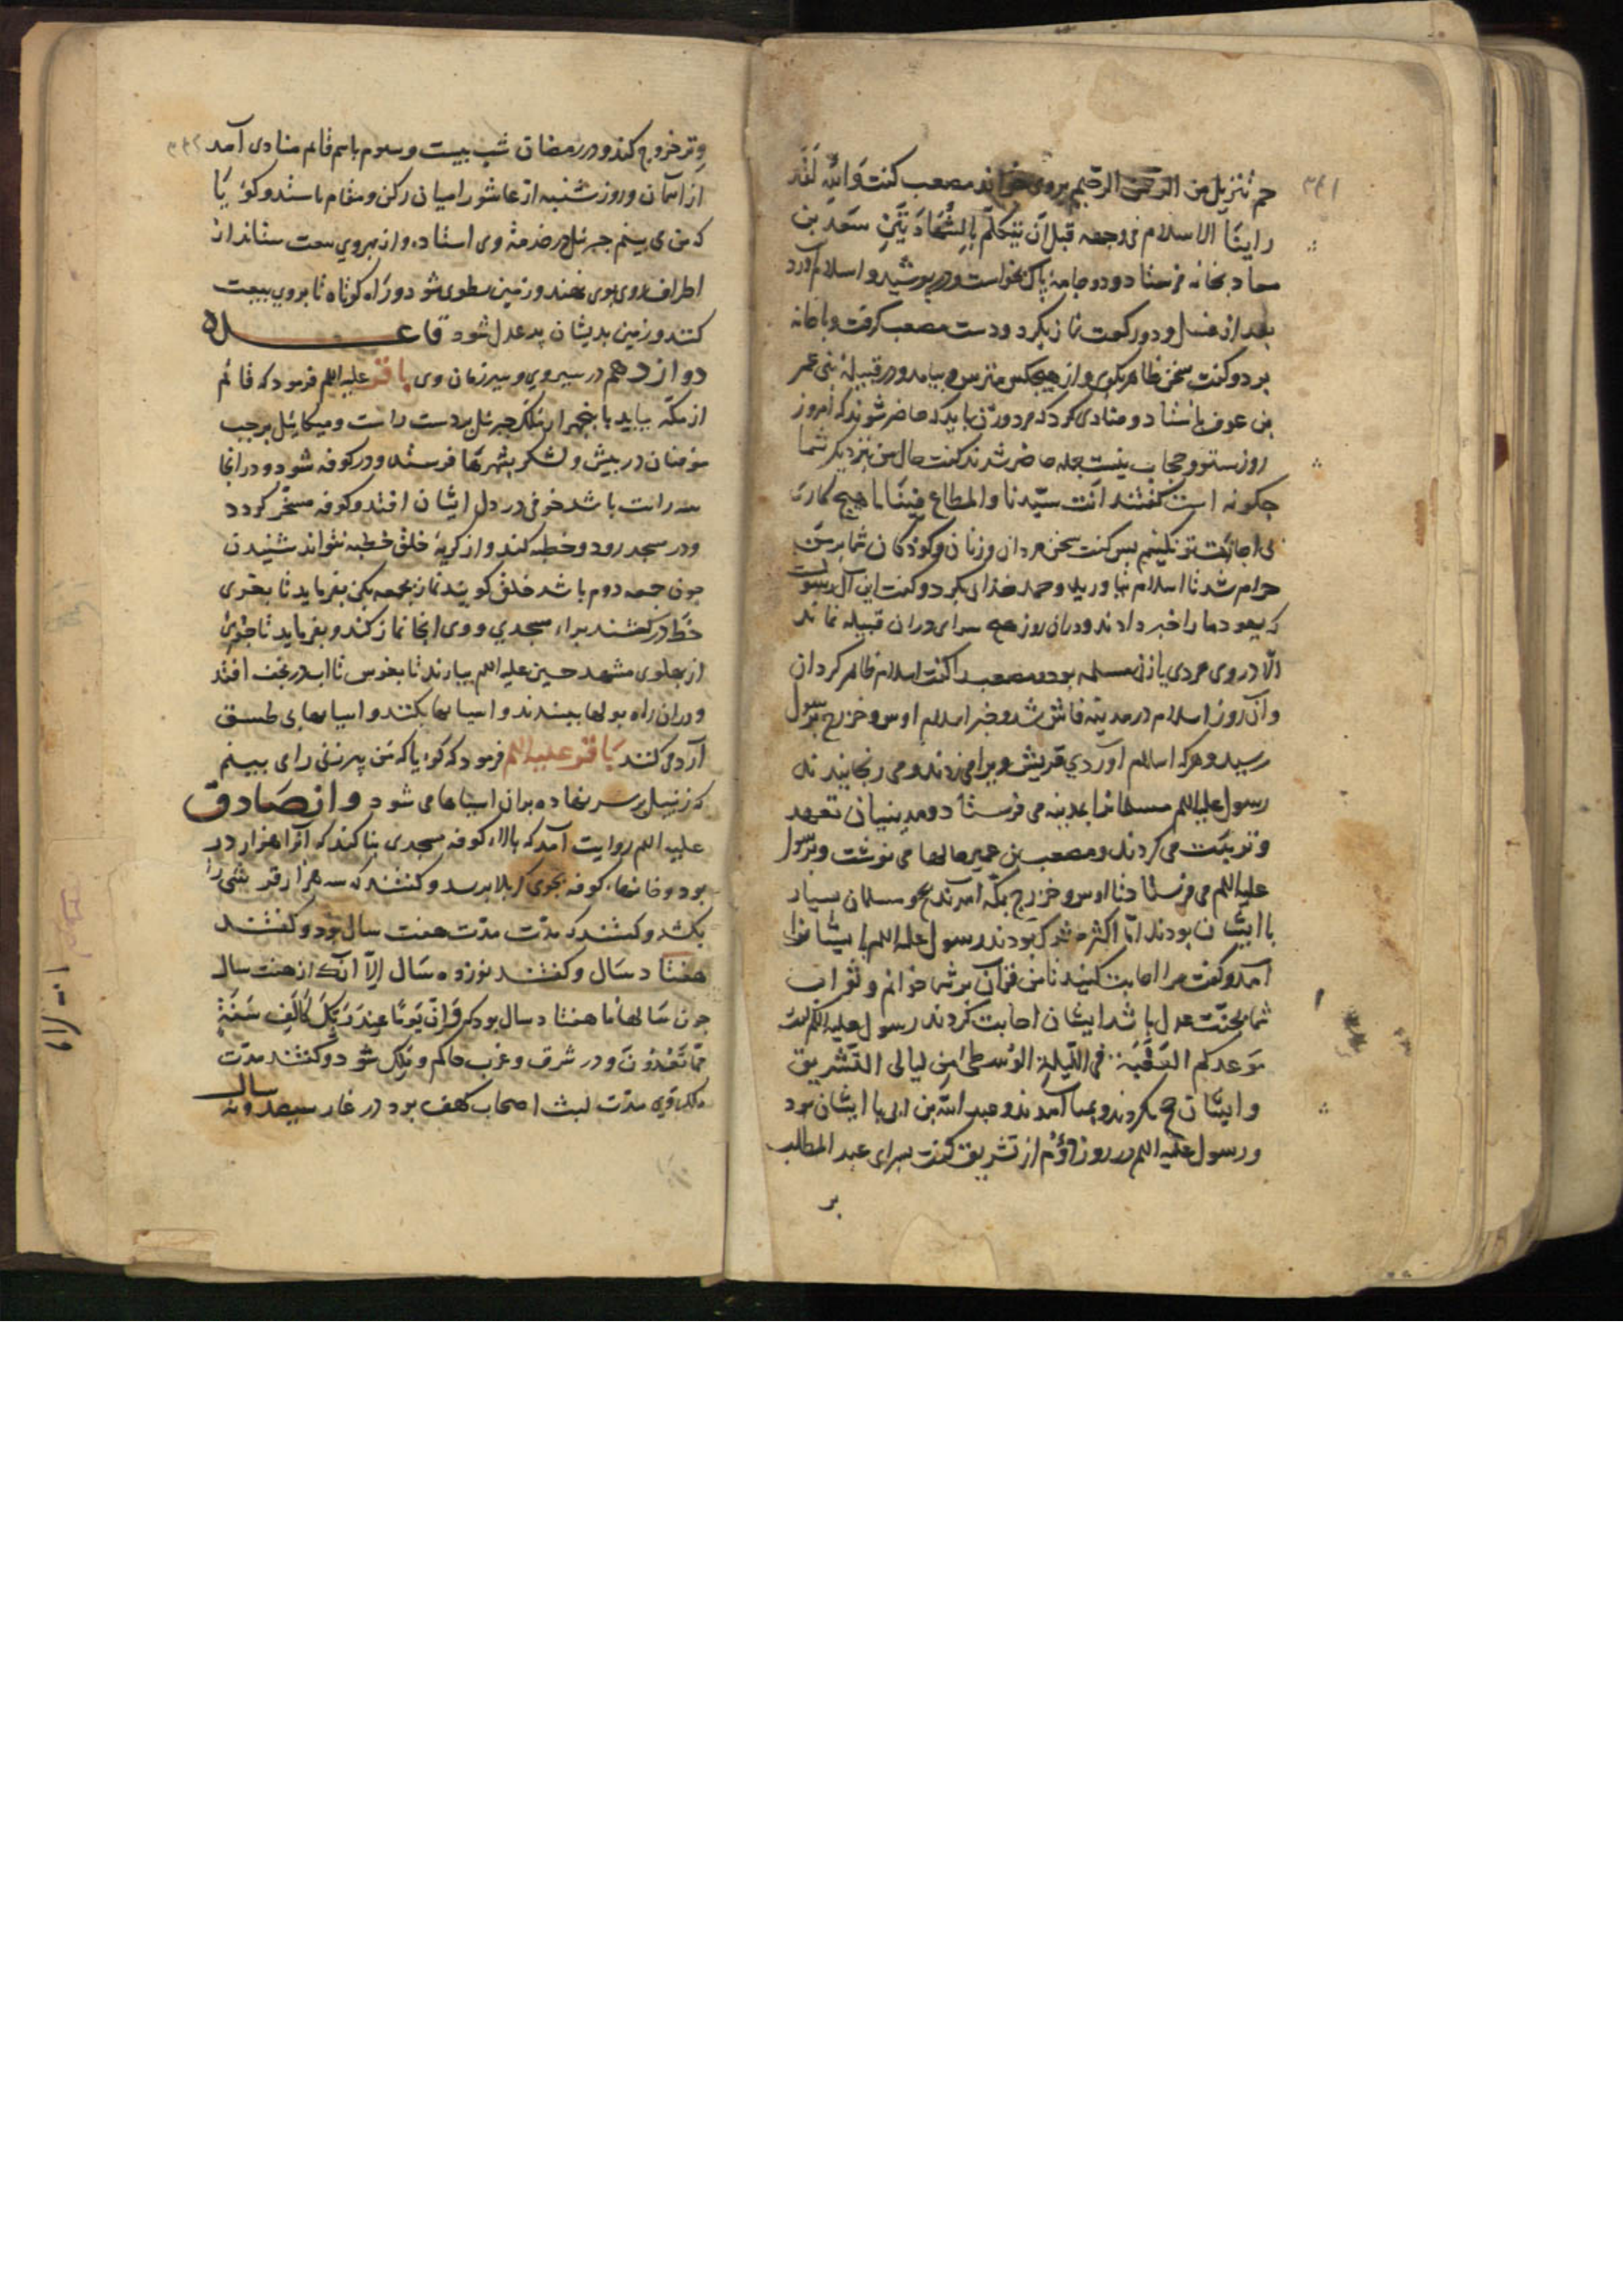 ۳۴۱
حم تنزیل من الرحمن الرحیم بروی خواند مصعب کفت والله لقد
راینا الاسلام فی وجهه قبل ان یتکلم بالشهادتین سعد بن
معاد بخانه فرستاد و دو جامۀ پاک بخواست و در پوشید و اسلام آورد
بعد از غسل و دو رکعت نماز بکرد و دست مصعب کرفت و با خانه
برد و کفت سخن ظاهر بکوی و از هیچکس مترس و بیامد و در قبیلۀ بنی عمر
بن عوف بایستاد و منادی کرد که مرد و زن باید که حاضر شوند که امروز
روز ستر و حجاب نیست جمله حاضر شدند کفت حال من نزدیک شما
چکونه است کفتند انت سیدنا والمطاع فینا ما هیچ کاری
بی اجازت تو نکنیم پس کفت سخن مردان و زنان و کودکان شما بر من
حرام شد تا اسلام نیاورید و حمد خدای بکرد و کفت این آن رسولست
که یهود ما را خبر دادند و در ان روز هیچ سرای در ان قبیله نماند
الا در وی مردی یا زنی مسلمه بود و مصعب را کفت اسلام ظاهر کردان
و آن روز اسلام در مدینه فاش شد و خبر اسلام اوس و خزرج برسول
رسید و هرکه اسلام آوردی قریش ویرا می زدند و می رنجانیدند
رسول علیه السلم مسلمانانرا بمدینه می فرستاد و مدینیان تعهد
و تربیت می کردند و مصعب بن عمیر حالها می نوشت و برسول
علیه السلم می فرستاد تا اوس و خزرج بمکه آمدند بحج و مسلمان بسیار
با ایشان بودند اما اکثر مشرک بودند رسول علیه السلم با یشانرا
آمد و کفت مرا اجابت کنید تا من قرآن بر شما خوانم و ثواب
شما بجنت عدل باشد ایشان اجابت کردند رسول علیه السلم کفت
موعدکم العقبة فی اللیلة الوسطی من لیالی التشریق
و ایشان حج بکردند و بمنا آمدند و عبد الله بن ابی با ایشان بود
و رسول علیه السلم در روز دوم از تشریق کفت بسرای عبد المطلب
بر
۳۴۲
وتر خروج کند و در رمضان شب بیست و سوم باسم قائم منادی آمد
از اسمان و روز شنبه از عاشورا میان رکن و مقام باستد و کوئیا
که من می بینم جبرئیل در خدمة وی استاده و از بهر وی بیعت ستاند از
اطراف روی بوی نهند و زمین مطوی شود و راه کوتاه تا بروی بیعت
کنند و زمین بدیشان پر عدل شود قاعــده
دوازدهم در سیروی و سیر زمان وی باقر علیه السلم فرمود که قائم
از مکه بیاید با پنجهزار ملک جبرئیل بر دست راست و میکائیل بر چپ
مومنان در پیش و لشکر بشهرها فرستد و در کوفه شود و در انجا
سه رایت باشد خوفی در دل ایشان افتد و کوفه مسخر کردد
و در مسجد رود و خطبه کند و از کریه خلق خطبه نتواند شنیدن
چون جمعه دوم باشد خلق کویند نماز جمعه بکن بفرماید تا بغری
خط در کشند براء مسجدی و وی انجا نماز کند و بفرماید تا جوئی
از پهلوی مشهد حسین علیه السلم بیارند تا بغوس تا اب در نجف افتد
و در ان راه بولها ببندند و اسیابها بکنند و اسیابهای بی طسق
آرد می کنند باقر علیه السلم فرمود که کویا که من پیرزنی را می بینم
که زنبیل بر سر نهاده بدان اسیاها می شود و از صادق
علیه السلم روایت آمد که بالاء کوفه مسجدی بنا کند که آنرا هزار در
بود و خانهاء کوفه بجوی کربلا برسد و کفتند که سه هزار قرشی را
بکشد و کفتند که مدت مدت هفت سال بود و کفتند
هفتاد سال و کفتند نوزده سال الا انک از هفت سال
چون سالها ما هفتاد سال بود که وان یوما عند ربک کالف سنة
مما تعدون و در شرق و غرب حاکم و ملک شود و کفتند مدت
ملک وی مدت لبث اصحاب کهف بود در غار سیصد و نه سال